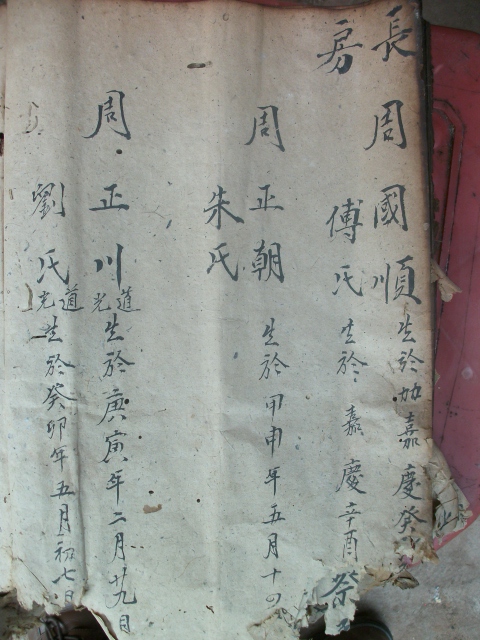 長房
周國順生於加嘉慶癸
傅氏生於嘉慶辛酉
周正朝生於甲申年五月十四
朱氏
周正川道光生於庚寅年二月廿九日
劉氏道光生於癸卯年五月初七日